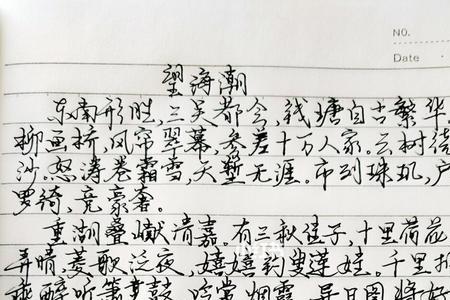 NO.
Date
望海潮
东南形胜,三吴都会,钱塘自古繁华。
柳画桥,风帘翠幕,参差十万人家。云树绕
沙,怒涛卷霜雪,天堑无涯。市列珠玑,户
罗绮,竞豪奢。
重湖叠巘清嘉。有三秋佳子,十里荷花
弄晴,菱歌泛夜,嬉嬉钓叟莲娃。千里拥
醉听箫鼓,吟赏烟霞。异日图将好